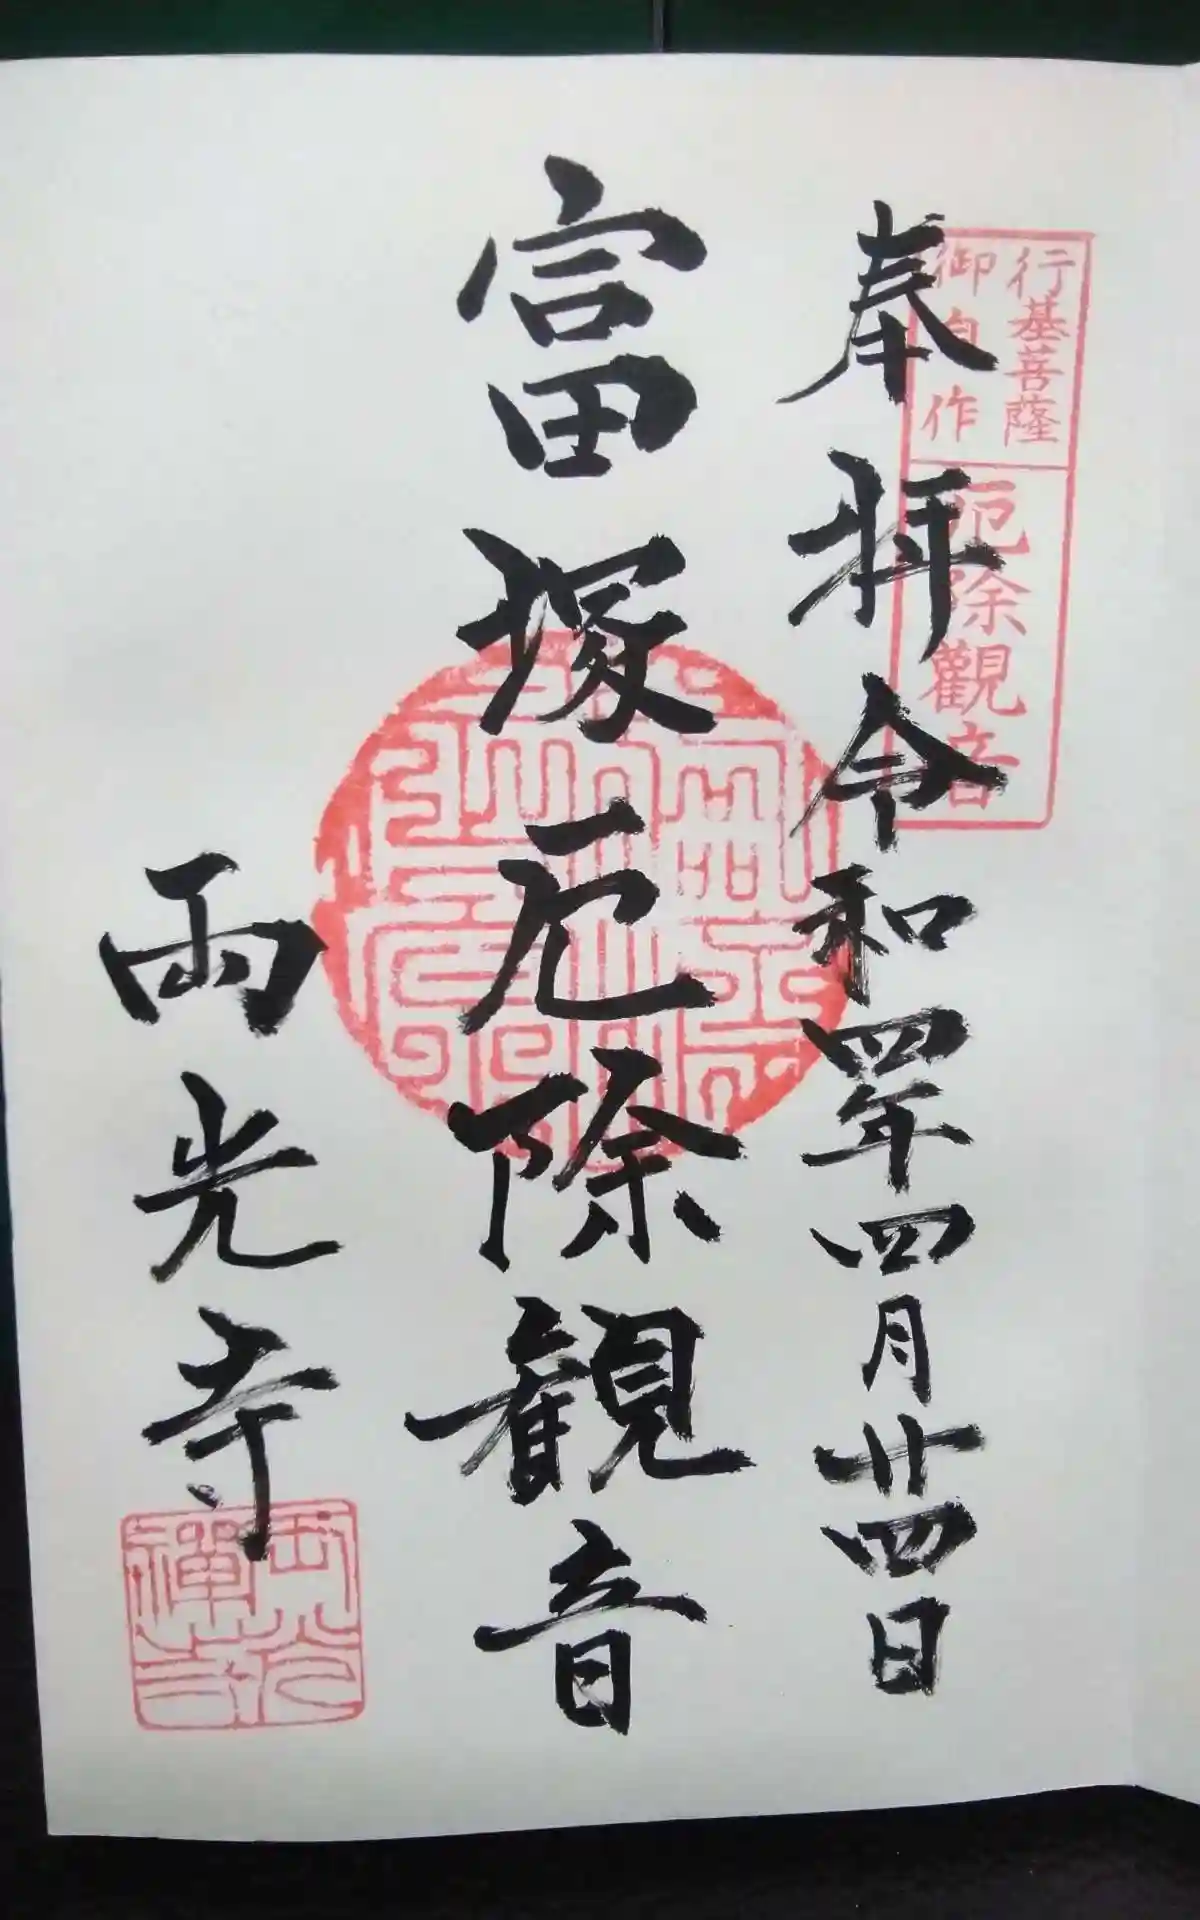 行基菩薩
御自作
厄除觀音
奉拝令和四年四月廿四日
富塚厄除観音
両光寺